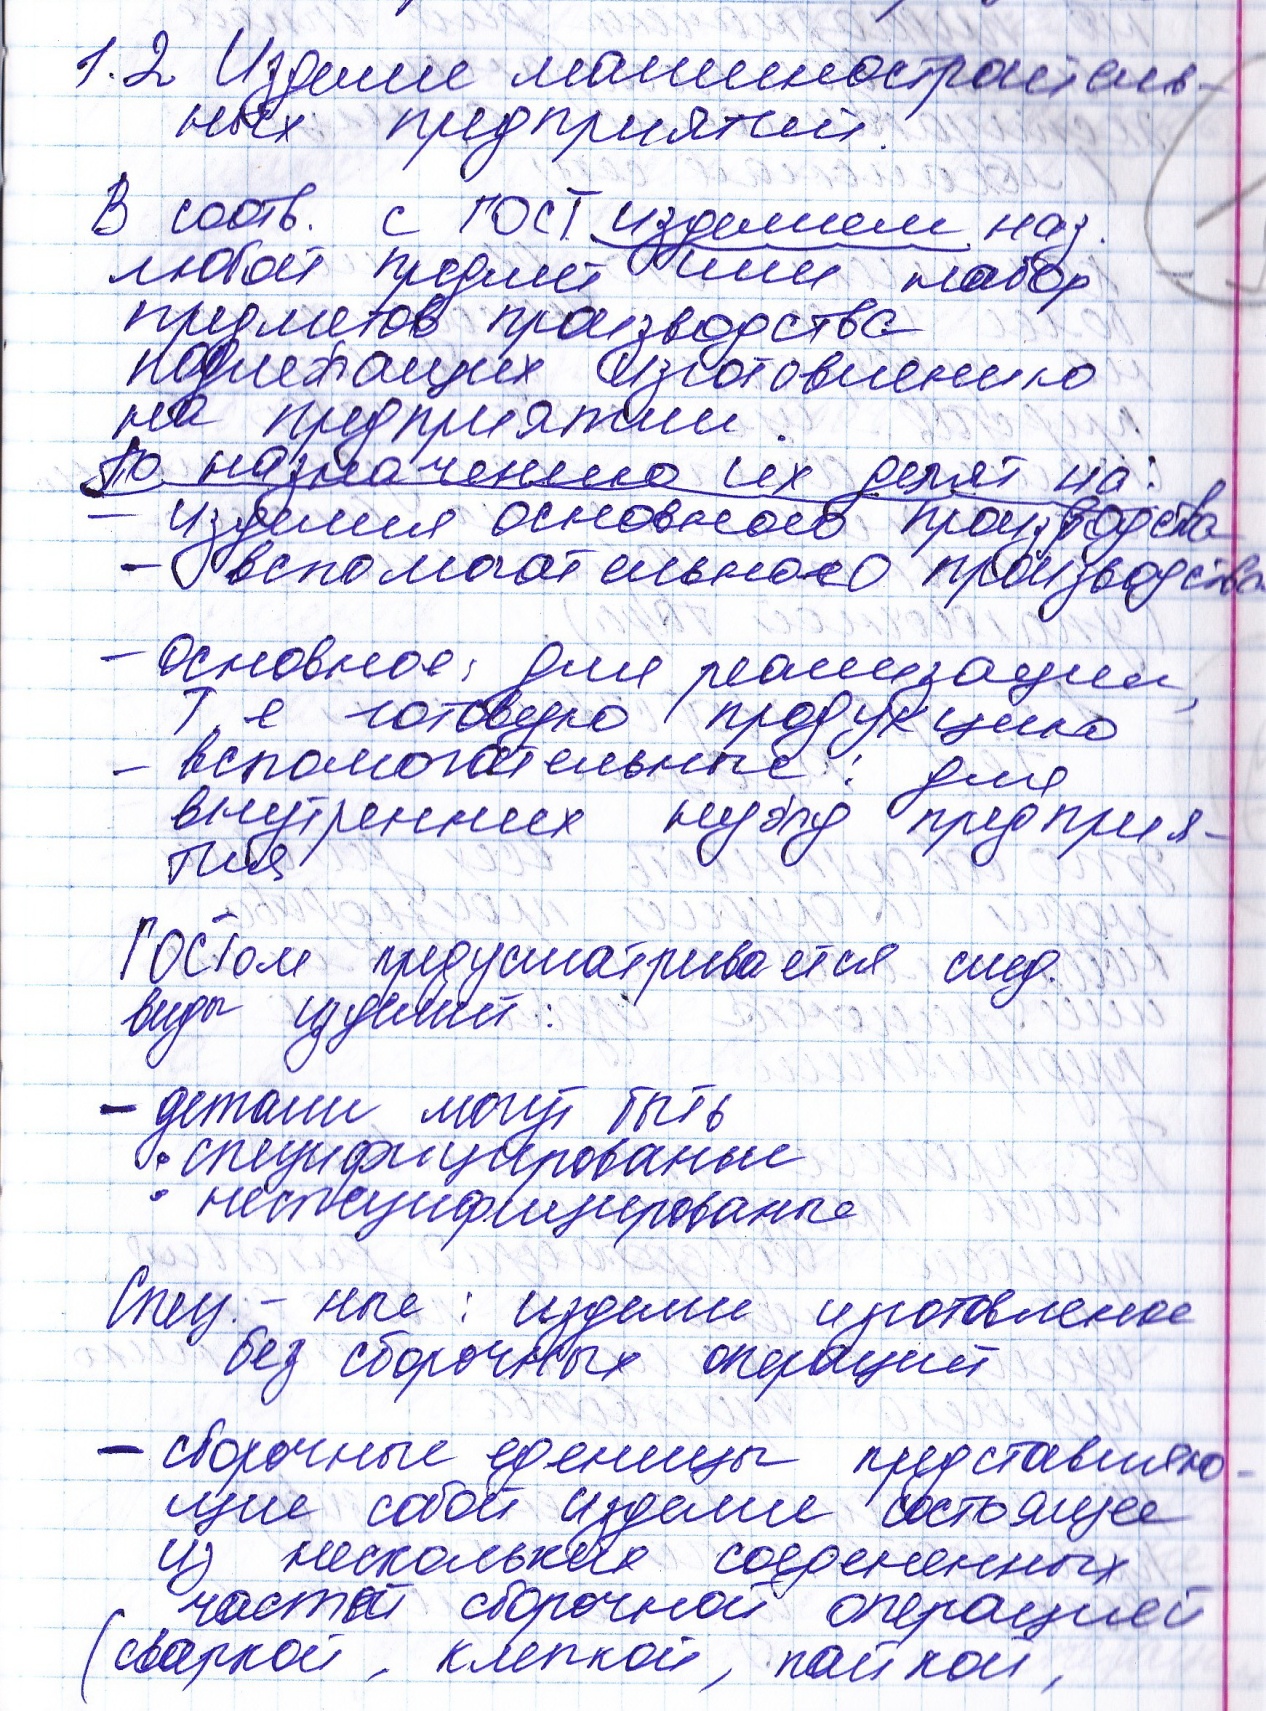 1.2 Изделие машинострои­тель-
ных предприятий.
В соотв. с ГОСТ изделием наз.
любой предмет или набор
предметов производства
подлежащих изготовлению
на предприятии.
По назначению их делят на:
– изделия основного производства
– вспомогательного производства
– основное: для реализации,
т.е готовую продукцию
– вспомогательные: для
внутренних нужд предприя-
тия
ГОСТом предусматривается след.
виды изделий:
– детали могут быть
• специфицированые
• неспецифицированые
Спец. – ные: изделие изготовленое
без сборочных операций
– сборочные еденицы представляю-
щие собой изделие состоящее
из нескольких соедененных
частей сборочной операцией
(сваркой, клепкой, пайкой,